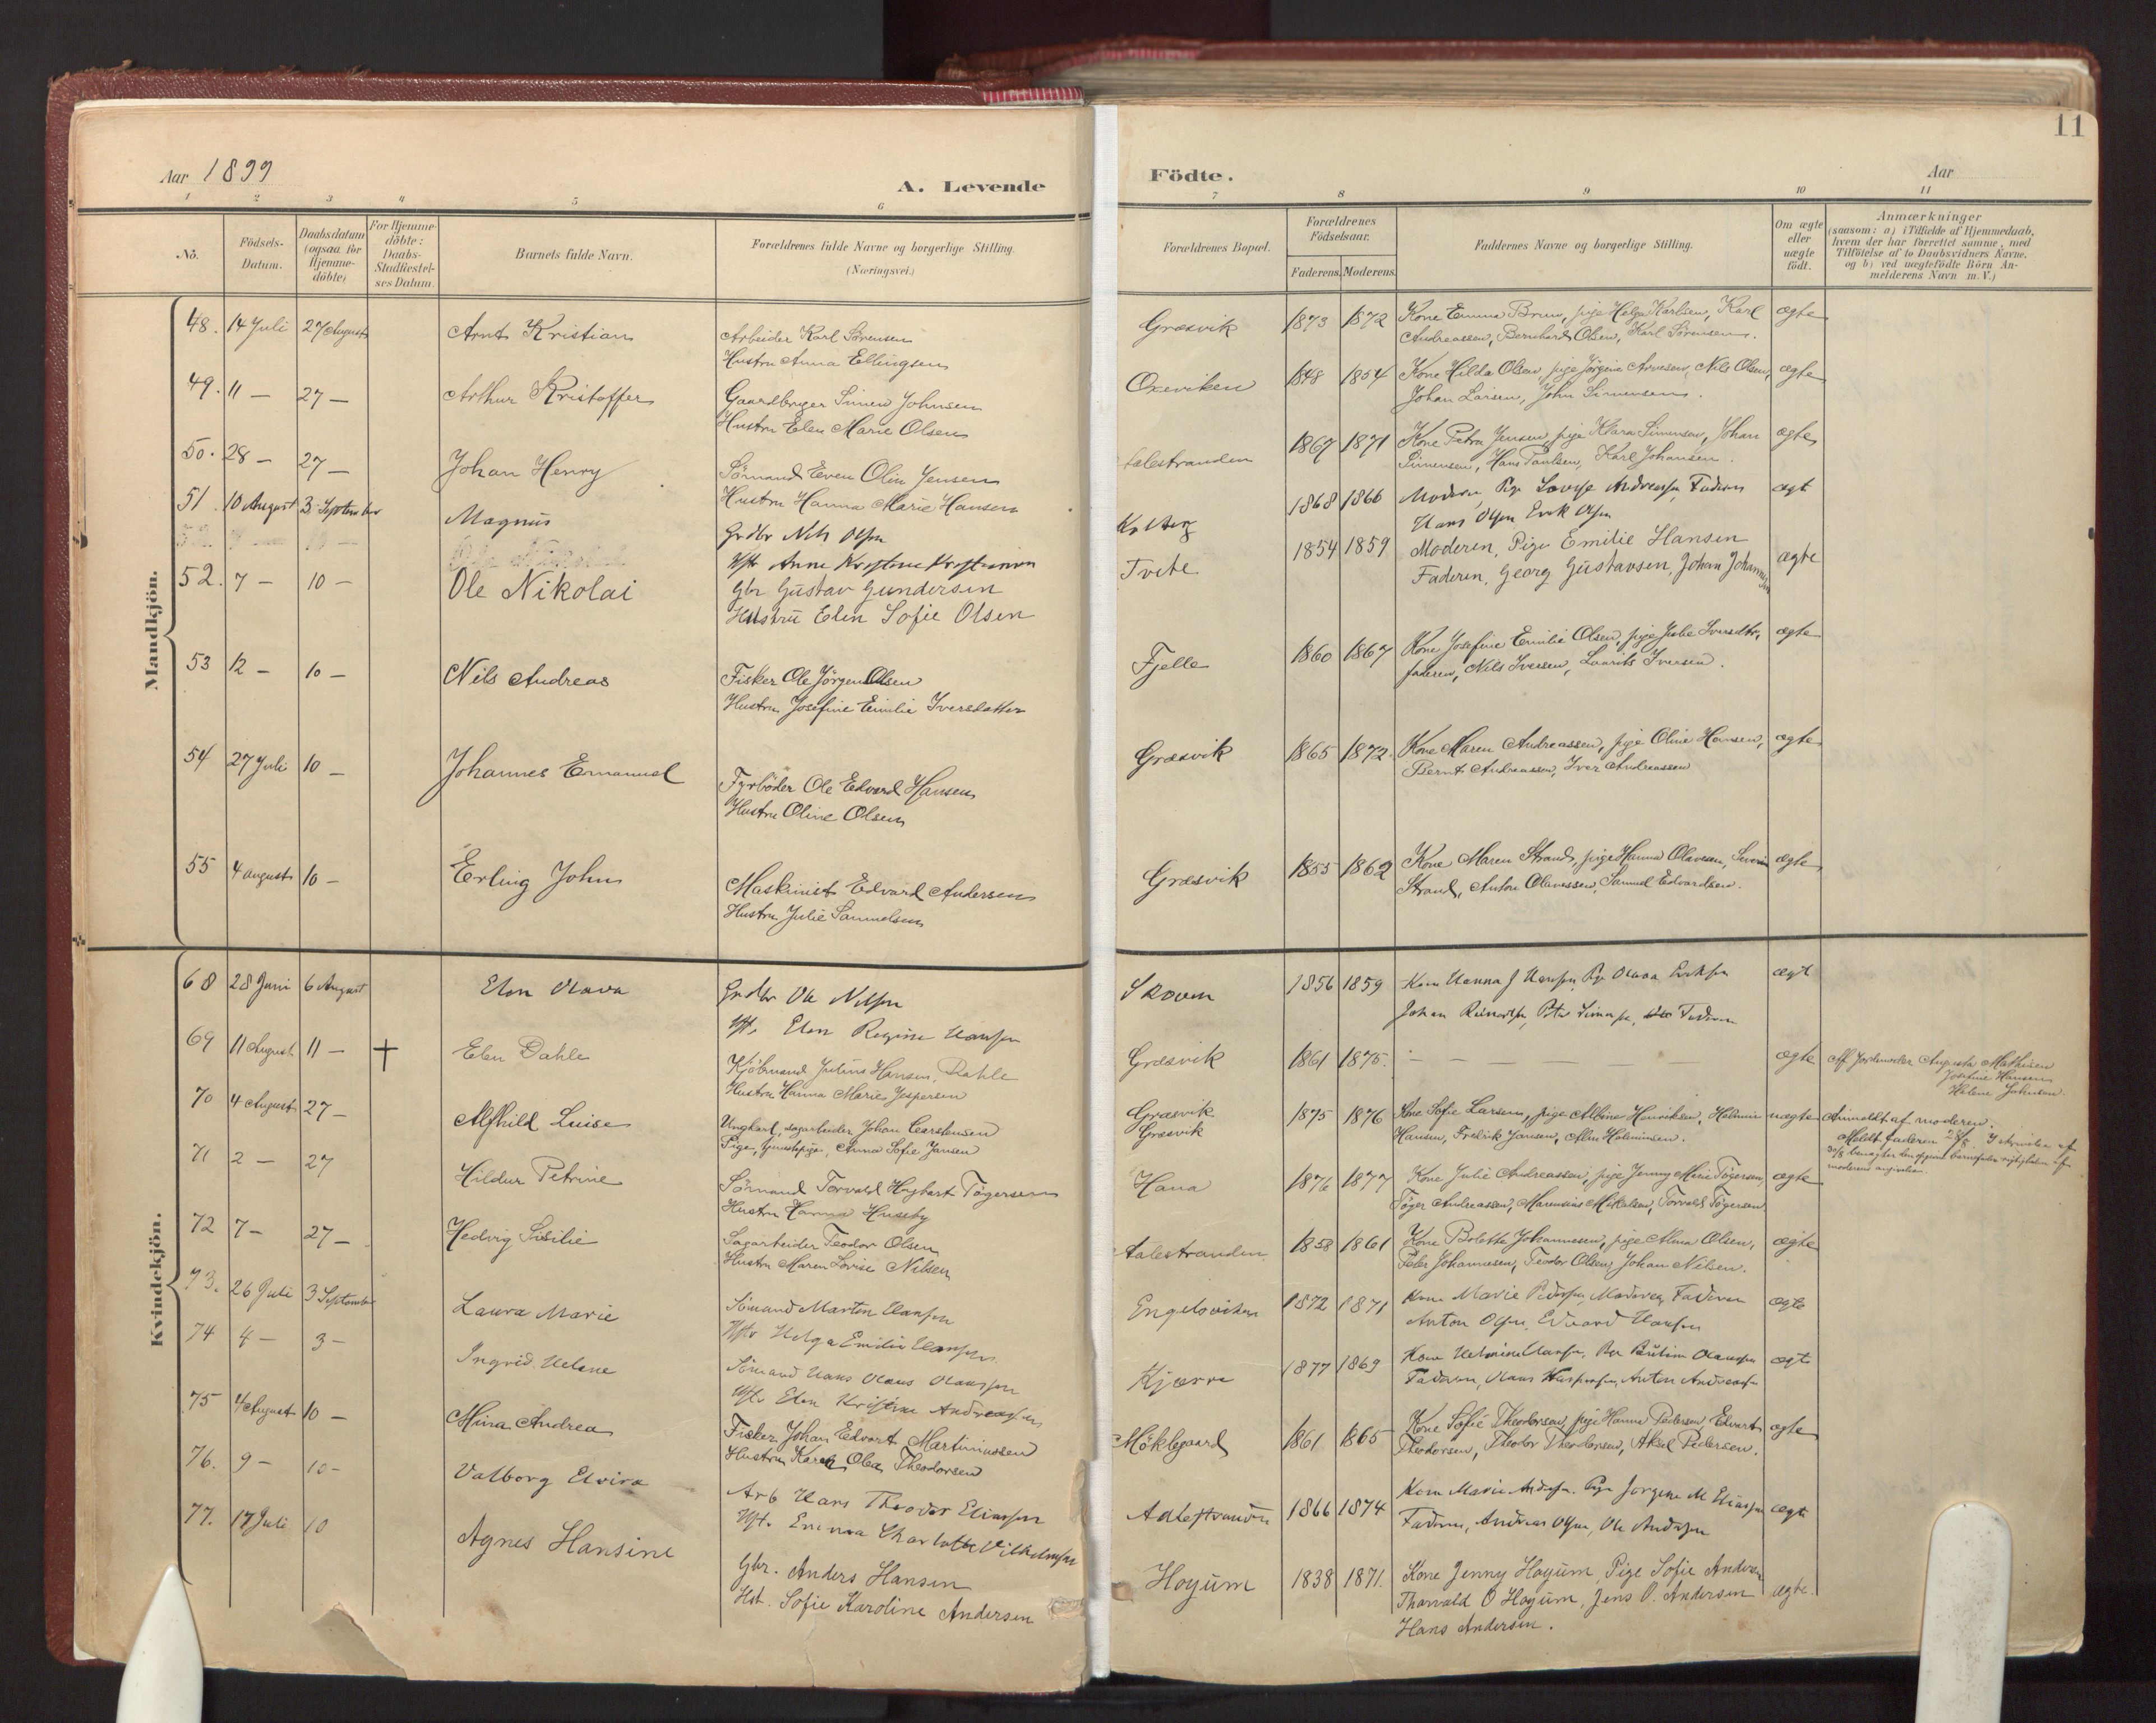 11
Aar 1899
A. Levende
Födte.
Aar
1 2 3 4 5 6 7 8 9 10 11
No.
Födsels-
Datum.
Daabsdatum
(ogsaa for
Hjemme-
döbte)
For Hjemme-
döbte:
Daabs-
Stadfæstel-
ses Datum.
Barnets fulde Navn.
Forældrenes fulde Navne og borgerlige Stilling.
(Næringsvei.)
Forældrenes Bopæl.
Forældrenes
Födselsaar.
Faderens. Moderens.
Faddernes Navne og borgerlige Stilling.
Om ægte
eller
uægte
födt.
Anmærkninger
(saasom: a) i Tilfælde af Hjemmedaab,
hvem der har forrettet samme, med
Tilföielse af to Daabsvidners Navne,
og b) ved uægtefödte Börn An-
melderens Navn m. V.)
Mandkjön.
48. 14 Juli 27 August Arnt Kristian
Arbeider Karl Sørensen
Hustru Anna Ellingsen
Græsvik 1873 1872
Kone Emma Brun, pige Helga Karlsen, Karl
Andreassen, Bernhard Olsen, Karl Sørensen.
ægte
49. 11 — 27 — Arthur Kristoffer
Gaardbruger Simen Johnsen
Hustru Elen Marie Olsen
Oxeviken 1848 1854
Kone Hilda Olsen, pige Jørgine Arvesen, Nils Olsen,
Johan Larsen, John Simensen.
ægte
50. 28 — 27 — Johan Henry
Sømand Even Olin Jensen
Hustru Hanna Marie Hansen
Alestranden 1867 1871
Kone Petra Jensen, pige Klara Simensen, Johan
Simensen, Hans Paulsen, Karl Johansen.
ægte
51. 10 August 3 September Magnus
Grdbr Nils Olsen
Hst Anne Kristine Kristiansen
1868 1866
Moderen, Pige Lovise Andreassen, Faderen
Hans Olsen, Erik Olsen
ægte
52. 7 — 10 — Ole Nikolai
Gbr Gustav Gundersen
Hustru Elen Sofie Olsen
Tvete 1854 1859
Moderen, Pige Emilie Hansen
Faderen, Georg Gustavsen, Johan Johannsen
ægte
53 12 — 10 — Nils Andreas
Fisker Ole Jörgen Olsen
Hustru Josefine Emilie Iversdatter
Fjelle 1860 1867
Kone Josefine Emilie Olsen, pige Julie Iversdtr,
faderen, Nils Iversen, Laurits Iversen.
ægte
54 27 Juli 10 — Johannes Emanuel
Fyrböder Ole Edvard Hansen
Hustru Oline Olsen
Græsvik 1865 1872.
Kone Maren Andreassen, pige Oline Hansen,
Bernt Andreassen, Iver Andreassen
ægte
55 4 august 10 — Erling John
Maskinist Edvard Andersen
Hustru Julie Samuelsen
Græsvik 1855 1862
Kone Maren Strand, pige Hanna Olavesen, Severin
Strand, Anton Olavessen, Samuel Edvardsen.
ægte
Kvindekjön.
68 28 Juni 6 August Elen Olava
Grdbr Ole Nilsen
Hst. Elen Regine Hansen
Skoven 1856 1859
Kone Hanna J Hansen, Pige Olava Eriksen
Johan Reinertsen, Peter Simensen, Faderen
ægte
69 11 August 11 — † Elen Dahle
Kjöbmand Julius Hansen Dahle
Hustru Hanna Marie Jespersen
Græsvik 1861 1875.
— — — —
ægte
Af Jordmoder Augusta Mathisen
Josefine Hansen
Helene Johnsen
70 4 August 27 — Alfhild Luise
Ungkarl, sagarbeider Johan Carstensen
Pige, tjenestepige, Anna Sofie Jansen
Græsvik
Græsvik 1875 1876
Kone Sofie Larsen, pige Albine Henriksen, Helmin
Hansen, Fredrik Jansen, Alm Helminsen.
uægte
Anmeldt af moderen.
Meldt faderen
moderens angivelse.
71 2 — 27 Hildur Petrine
Sømand Torvald Hygbart Tøgersen
Hustru Hanna Huseby
Hana 1876 1877
Kone Julie Andreassen, pige Jenny Marie Tøgersen,
Tøger Andreassen, Marensius Mikalsen, Torvald Tøgersen
ægte
72 7 — 27 — Hedvig Sisilie
Sagarbeider Teodor Olsen
Hustru Maren Lovise Nilsen
Aalestranden 1858 1861
Kone Bolette Johannesen, pige Alma Olsen,
Peder Johannesen, Teodor Olsen, Johan Nilsen.
ægte
73. 26 Juli 3 September Laura Marie
Sömand Martin Hansen
Hst Helga Emilie Hansen
Engelsviken 1872 1871
Kone Marie Pedersen, Moderen, Faderen
Anton Olsen, Edvard Hansen
ægte
74 4 — 3 — Ingrid Helene
Sömand Hans Olaus Olaussen
Hst Elen Kristine Andreassen
Kjærre 1877 1869
Kone Helmine Hansen, Pige Pauline Olaussen
Faderen, Olaus Kaspersen, Anton Andreassen
ægte
75 4 August 10 — Mina Andrea
Fisker Johan Edvart Martiniussen
Hustru Karen Olea Theodorsen
Möklegaard 1861 1865
Kone Sofie Theodorsen, pige Hanna Pedersen, Edvart
Theodorsen, Theodor Theodorsen, Aksel Pedersen.
ægte
76. 9 — 10 — Valborg Elvira
Arb Hans Theodor Eliassen
Hst. Emma Charlotte Vilhelmsen
Aalestranden 1866 1874
Kone Marie Andersen, Pige Jørgine M Eliassen
Faderen, Andreas Olsen, Ole Andersen
ægte
77. 17 Juli 10 Agnes Hansine
Gbr. Anders Hansen
Hst. Sofie Karoline Andersen
Hoyum 1838 1871.
Kone Jenny Hoyum, Pige Sofie Andersen
Thorvald O Hoyum, Jens O. Andersen
Hans Andersen.
ægte